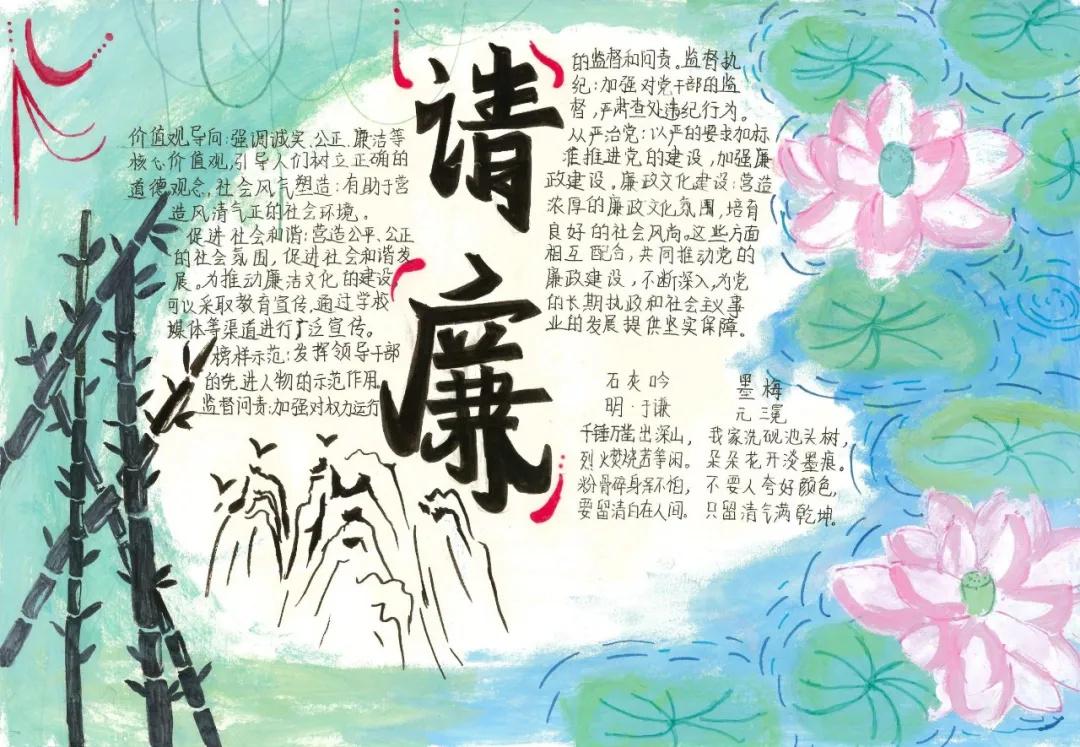 请廉
价值观导向:强调诚实、公正、廉洁等
核心价值观,引导人们树立正确的
道德观念,社会风气塑造:有助于营
造风清气正的社会环境。
促进社会和谐:营造公平、公正
的社会氛围,促进社会和谐发
展。为推动廉洁文化的建设
可以采取教育宣传,通过学校
媒体等渠道进行广泛宣传。
榜样示范:发挥领导干部
的先进人物的示范作用
监督问责:加强对权力运行
的监督和问责。监督执
纪:加强对党干部的监
督,严肃查处违纪行为。
从严治党:以严的要求加标
准推进党的建设,加强廉
政建设。廉政文化建设:营造
浓厚的廉政文化氛围,培育
良好的社会风尚。这些方面
相互配合,共同推动党的
廉政建设,不断深入,为党
的长期执政和社会主义事
业的发展提供坚实保障。
石灰吟
明·于谦
千锤万凿出深山,
烈火焚烧若等闲。
粉骨碎身浑不怕,
要留清白在人间。
墨梅
元 王冕
我家洗砚池头树,
朵朵花开淡墨痕。
不要人夸好颜色,
只留清气满乾坤。